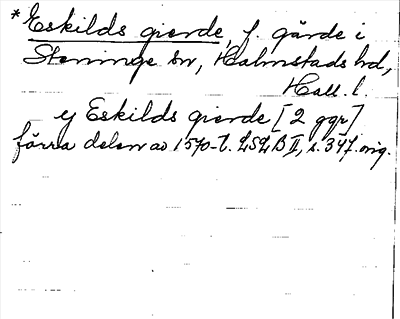 *Eskilds gierde, f. gärde i
Steninge sn, Halmstads hd,
Hall. l.
ij Eskilds gierde [2 ggr]
förra delen av 1570-t. LSLB II, s. 347. orig.